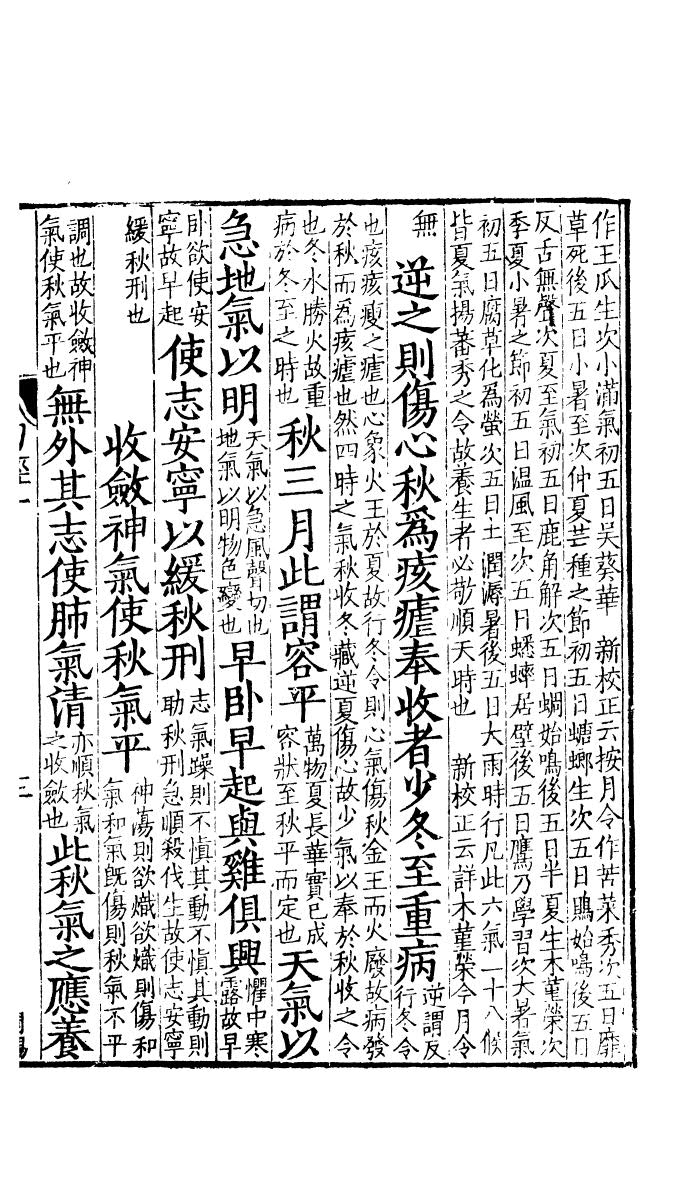 作王瓜生次小滿氣初五日吳葵華　新校正云按月令作苦菜秀次五日靡
草死後五日小暑至次仲夏芒種之節初五日螗螂生次五日鵙始鳴後五日
反舌無聲次夏至氣初五日鹿角解次五日蜩始鳴後五日半夏生木菫榮次
季夏小暑之節初五日温風至次五日蟋蟀居壁後五日鷹乃學習次大暑氣
初五日腐草化爲螢次五日土潤溽暑後五日大雨時行凡此六氣一十八候
皆夏氣揚蕃秀之令故養生者必敬順天時也　新校正云詳木菫榮今月令
無
逆之則傷心秋爲痎瘧奉收者少冬至重病
逆謂反
行冬令
也痎痎瘦之瘧也心象火王於夏故行冬令則心氣傷秋金王而火廢故病發
於秋而爲痎瘧也然四時之氣秋收冬藏逆夏傷心故少氣以奉於秋收之令
也冬水勝火故重
病於冬至之時也
秋三月此謂容平
萬物夏長華實已成
容狀至秋平而定也
天氣以
急地氣以明
天氣以急風聲切也
地氣以明物色變也
早卧早起與雞俱興
懼中寒
露故早
卧欲使安
寧故早起
使志安寧以緩秋刑
志氣躁則不慎其動不慎其動則
助秋刑急順殺伐生故使志安寧
緩秋刑也
收斂神氣使秋氣平
神蕩則欲熾欲熾則傷和
氣和氣旣傷則秋氣不平
調也故收斂神
氣使秋氣平也
無外其志使肺氣清
亦順秋氣
之收斂也
此秋氣之應養
三